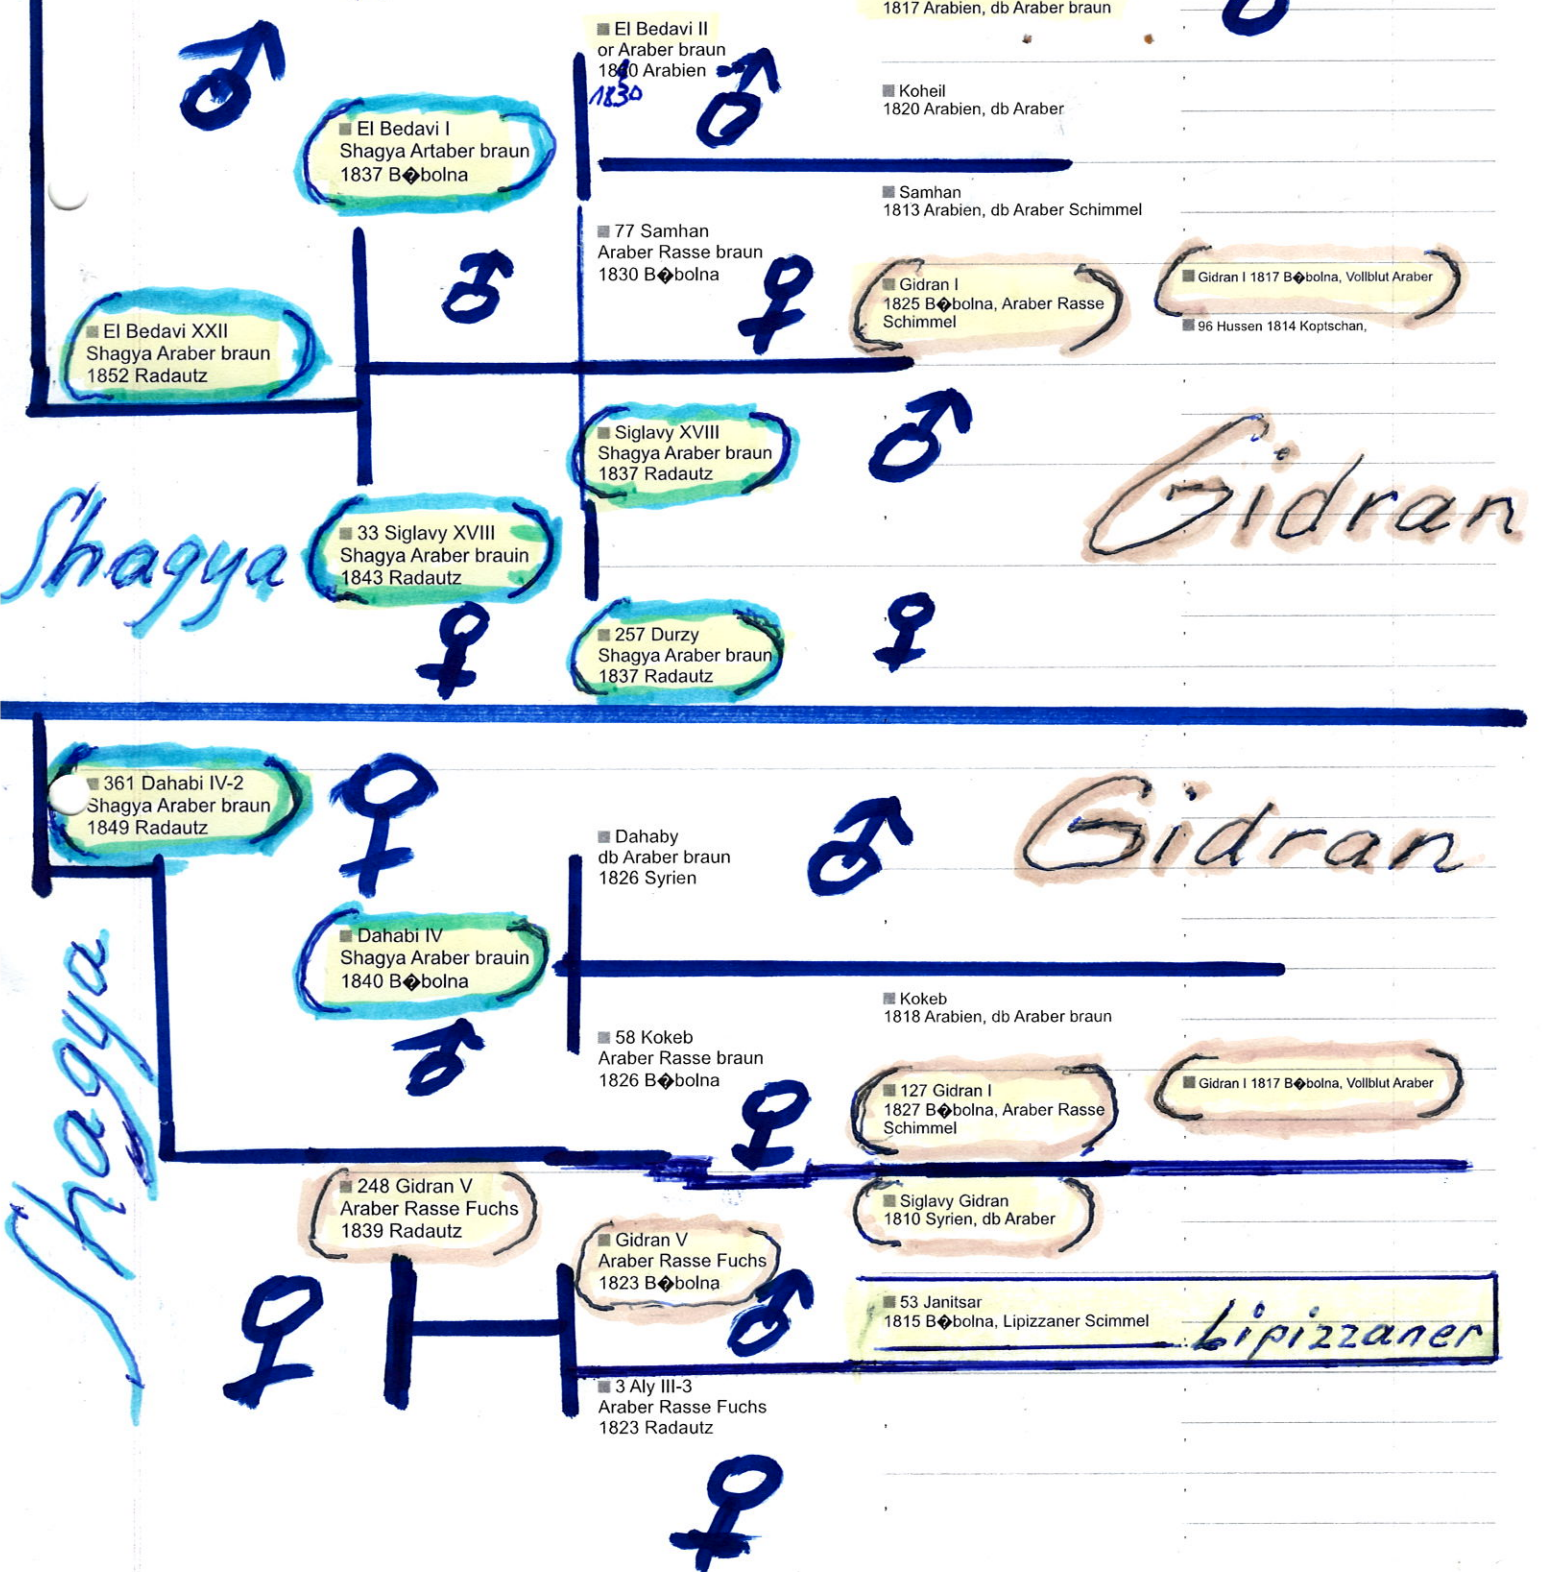 1817 Arabien, db Araber braun
El Bedavi II
or Araber braun
1830
Koheil
1820 Arabien, db Araber
El Bedavi I
Shagya Artaber braun
1837 B�bolna
Samhan
1813 Arabien, db Araber Schimmel
77 Samhan
Araber Rasse braun
1830 B�bolna
Gidran I
1825 B�bolna, Araber Rasse
Schimmel
Gidran I 1817 B�bolna, Vollblut Araber
96 Hussen 1814 Koptschan,
El Bedavi XXII
Shagya Araber braun
1852 Radautz
Siglavy XVIII
Shagya Araber braun
1837 Radautz
Gidran
Shagya
33 Siglavy XVIII
Shagya Araber brauin
1843 Radautz
257 Durzy
Shagya Araber braun
1837 Radautz
361 Dahabi IV-2
Shagya Araber braun
1849 Radautz
Gidran
Dahaby
db Araber braun
1826 Syrien
Dahabi IV
Shagya Araber brauin
1840 B�bolna
Shagya
Kokeb
1818 Arabien, db Araber braun
58 Kokeb
Araber Rasse braun
1826 B�bolna
127 Gidran I
1827 B�bolna, Araber Rasse
Schimmel
Gidran I 1817 B�bolna, Vollblut Araber
248 Gidran V
Araber Rasse Fuchs
1839 Radautz
Siglavy Gidran
1810 Syrien, db Araber
Gidran V
Araber Rasse Fuchs
1823 B�bolna
53 Janitsar
1815 B�bolna, Lipizzaner Scimmel
Lipizzaner
3 Aly III-3
Araber Rasse Fuchs
1823 Radautz